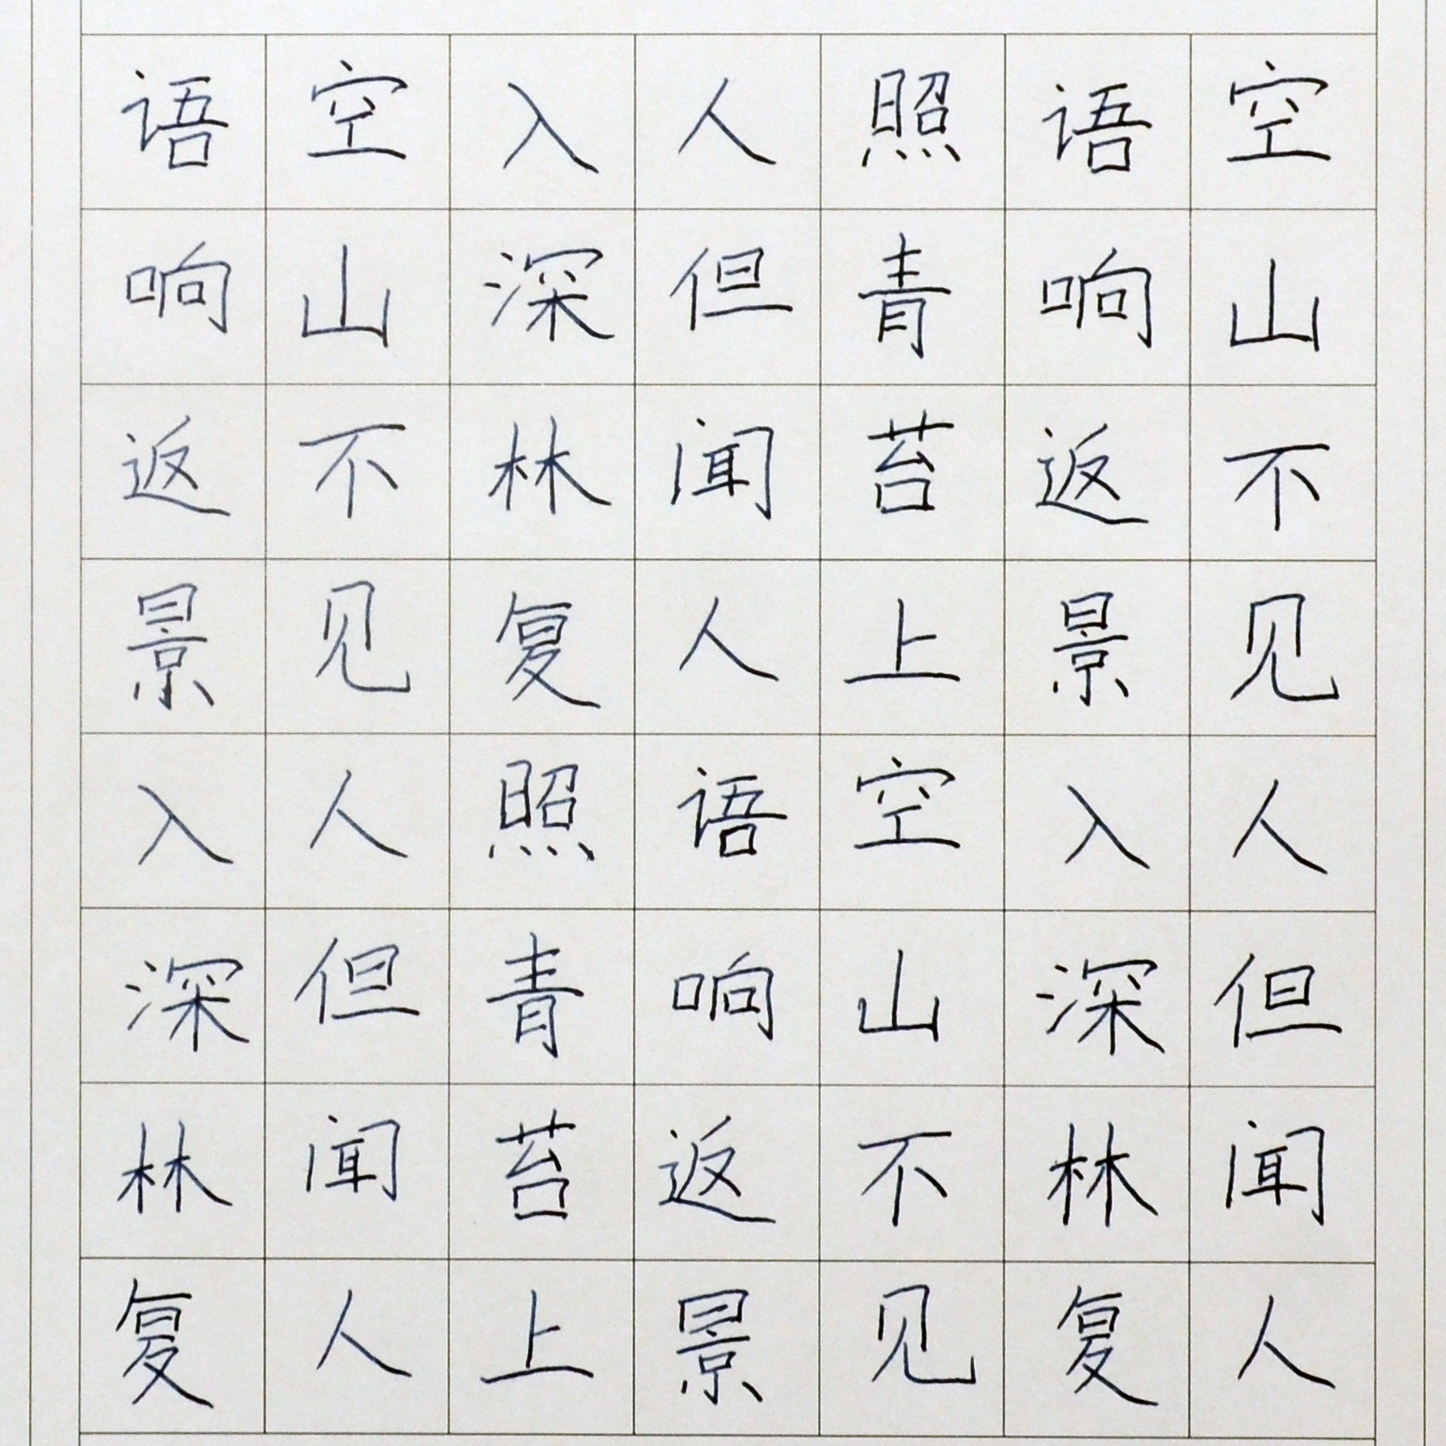 空山不见人但闻人
语响返景入深林复
照青苔上空山不见
人但闻人语响返景
入深林复照青苔上
空山不见人但闻人
语响返景入深林复